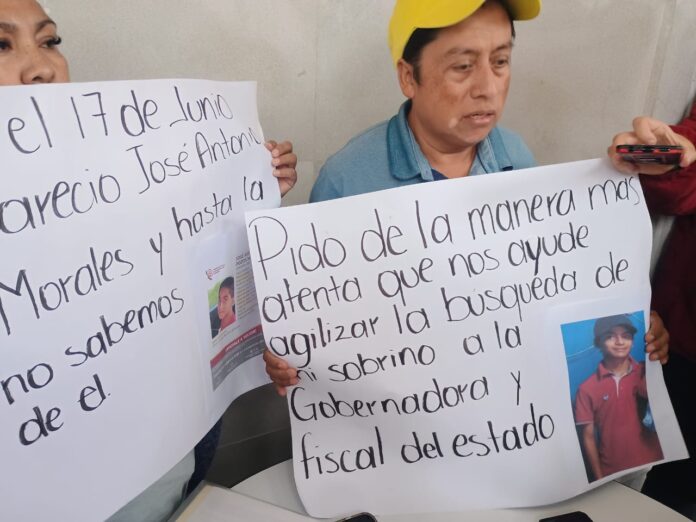 el 17 de Junio
arecio José Antonio
Morales y hasta la
no sabemos
de el.
Pido de la manera mas
atenta que nos ayude
agilizar la búsqueda de
mi sobrino a la
Gobernadora y
fiscal del estado